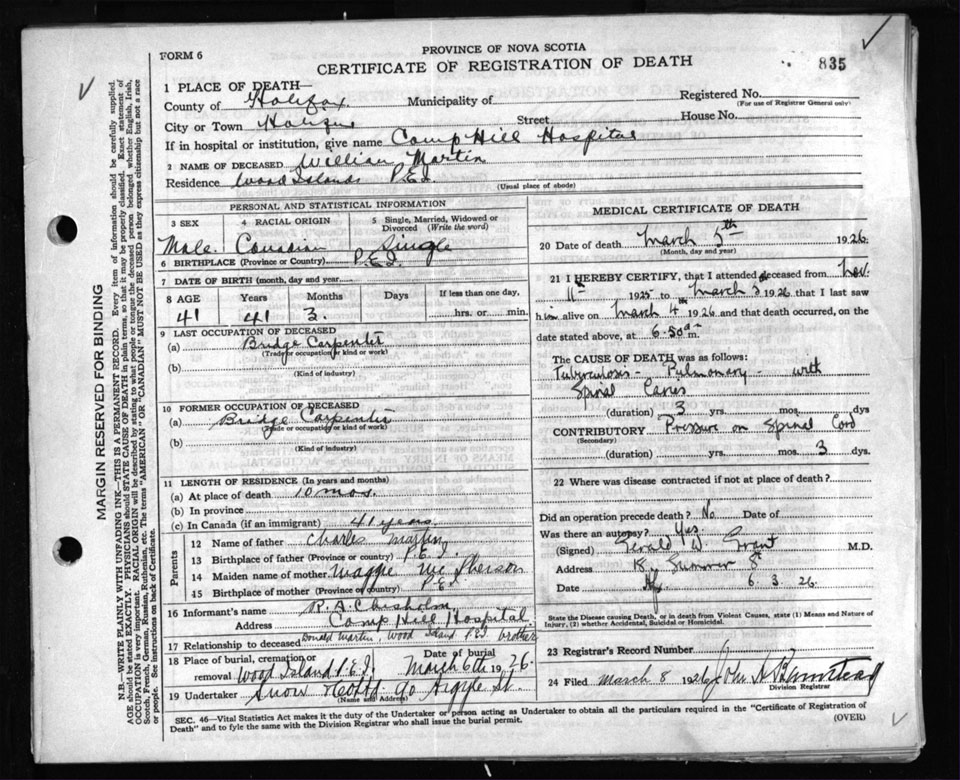 PROVINCE OF NOVA SCOTIA
FORM 6
CERTIFICATE OF REGISTRATION OF DEATH
835
1 PLACE OF DEATH—
County of Halifax Municipality of
Registered No.
(For use of Registrar General only)
City or Town Halifax Street House No.
If in hospital or institution, give name Camp Hill Hospital
2 NAME OF DECEASED William Martin
Residence Wood Islands P.E.I.
(Usual place of abode)
PERSONAL AND STATISTICAL INFORMATION
3 SEX 4 RACIAL ORIGIN 5 Single, Married, Widowed or Divorced (Write the word)
Male Canadian Single
6 BIRTHPLACE (Province or Country) P.E.I.
7 DATE OF BIRTH (month, day and year)
8 AGE Years Months Days If less than one day,
41 41 3. hrs. or min.
9 LAST OCCUPATION OF DECEASED
(a) Bridge Carpenter
(Trade or occupation or kind or work)
(b)
(Kind of industry)
10 FORMER OCCUPATION OF DECEASED
(a) Bridge Carpenter
(Trade or occupation or kind of work)
(b)
(Kind of industry)
11 LENGTH OF RESIDENCE (In years and months)
(a) At place of death 10 mos.
(b) In province
(c) In Canada (if an immigrant) 41 years.
Parents
12 Name of father Charles Martin
13 Birthplace of father (Province or country) P.E.I.
14 Maiden name of mother Maggie Mc Pherson
15 Birthplace of mother (Province or country) P.E.I
16 Informant's name R. A. Chisholm
Address Camp Hill Hospital
17 Relationship to deceased Donald Martin, Wood Island P.E.I brother
18 Place of burial, cremation or removal Wood Island P.E.I. Date of burial March 6th 1926.
19 Undertaker Snow 90 Argyle St.
(Name and Address)
MEDICAL CERTIFICATE OF DEATH
20 Date of death March 5th 1926
(Month, day and year)
21 I HEREBY CERTIFY, that I attended deceased from Nov.
11 1925 to March 5 1926 that I last saw
him alive on March 4th 1926 and that death occurred, on the
date stated above, at 6.50 am
The CAUSE OF DEATH was as follows:
Tuberculosis - Pulmonary - with
Spinal Caries
(duration) 3 yrs. mos. dys
CONTRIBUTORY Pressure on Spinal Cord
(Secondary)
(duration) yrs. mos. 3 dys.
22 Where was disease contracted if not at place of death?
Did an operation precede death? No Date of
Was there an autopsy? Yes
(Signed) Gerald W. Grant M.D.
Address Summer St
Date 6.3.26.
State the Disease causing Death, or in death from Violent Causes, state (1) Means and Nature of
Injury, (2) whether Accidental, Suicidal or Homicidal.
23 Registrar's Record Number
24 Filed March 8 1926 John A Barnstead
Division Registrar
SEC. 46—Vital Statistics Act makes it the duty of the Undertaker or person acting as Undertaker to obtain all the particulars required in the "Certificate of Registration of
Death" and to fyle the same with the Division Registrar who shall issue the burial permit.
(OVER)
MARGIN RESERVED FOR BINDING
N.B.—WRITE PLAINLY WITH UNFADING INK—THIS IS A PERMANENT RECORD. Every item of information should be carefully supplied.
AGE should be stated EXACTLY. PHYSICIANS should STATE CAUSE OF DEATH in plain terms, so that it may be properly classified. Exact statement of
OCCUPATION is very important. RACIAL ORIGIN will be described by stating to what people or tongue the deceased person belonged whether English, Irish,
Scotch, French, German, Russian, Ruthenian, etc. The terms "AMERICAN" OR "CANADIAN" MUST NOT BE USED as they express citizenship but not a race
or people. See instructions on back of Certificate.